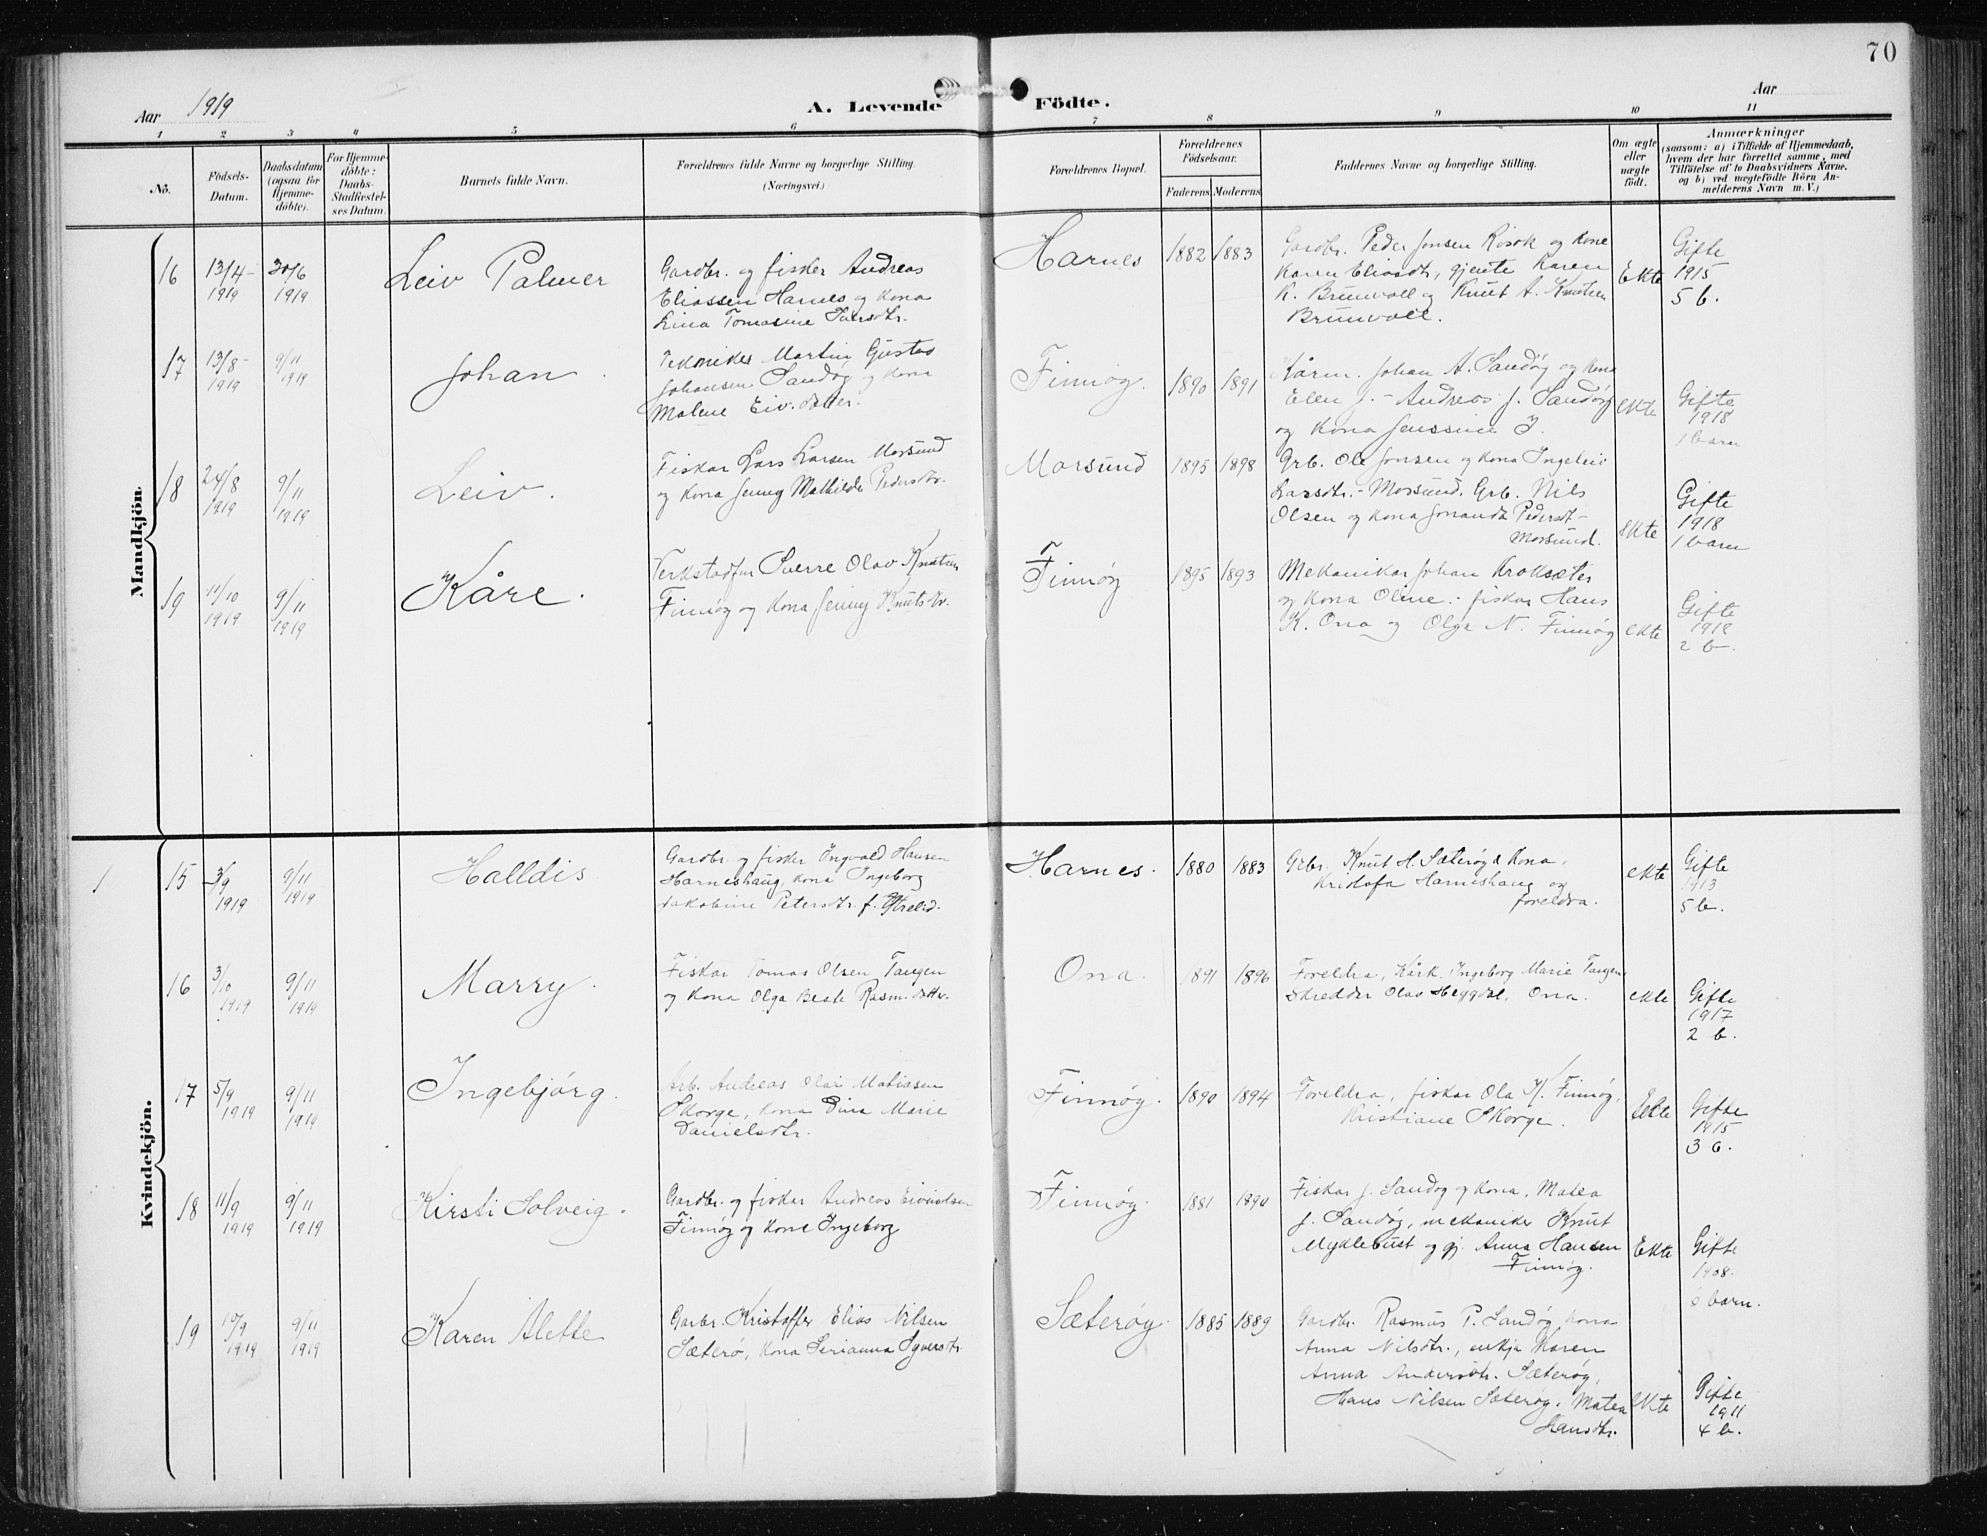 70
Aar 1919
A. Levende Födte.
Aar
1 2 3 4 5 6 7 8 9 10 11
No.
Födsels-
Datum.
Daabsdatum
(ogsaa for
Hjemme-
döbte).
For Hjemme-
döbte:
Daabs-
Stadfæstel-
ses Datum.
Barnets fulde Navn.
Forældrenes fulde Navne og borgerlige Stilling.
(Næringsvei.)
Forældrenes Bopæl.
Forældrenes
Födselsaar.
Faderens Moderens
Faddernes Navne og borgerlige Stilling.
Om ægte
eller
uægte
födt.
Anmærkninger
(saasom: a) i Tilfælde af Hjemmedaab,
hvem der har forrettet samme, med
Tilföielse af to Daabsvidners Navne.
og b) ved uægtefödte Börn An-
melderens Navn m. V.)
Mandkjön.
16
13/4-
1919
30/6
1919
Leiv Palmer
Gardbr. og fisker Andreas
Eliassen Harnes og kona
Lina Tomasine
Harnes
1882 1883
Gardbr. Peder Jonsen Rösok og kone
Karen Eliasdtr., gjente Karen
K. Brunvoll og Knut A. Knutsen
Brunvoll.
Ekte
Gifte
1915
5 b.
17
13/8-
1919
9/11
1919
Johan
Martin Gustav
Johansen Sandøy og kona
Malene Eiv.datter.
Finnøy.
1890 1891
Johan A. Sandøy og kona
Elen J. - Andreas J. Sandøy
og kona Jenssine J.
ekte
Gifte
1918
1 barn
18
24/8
1919
9/11
1919
Leiv.
Fiskar Lars Larsen Morsund
og kona Jenny Mathilde Pedersdtr.
Morsund
1895 1898
Grb. Ole Jonsen og kona Ingeleiv
Larsdtr. - Morsund. Grb. Nils
Olsen og kona
Morsund.
ekte
Gifte
1918
1 barn
19
11/10
1919
9/11
1919
Kåre.
Sverre Olav Knutsen
Finnøy og kona Jenny Knutsdtr.
Finnøy
1895 1893
Mekanikar Johan Kroksæter
og kona Oline. - fiskar Hans
K. Ona og Olga N. Finnøy
ekte
Gifte
2 b.
Kvindekjön.
1
15
3/9
1919
9/11
1919
Halldis
Gardbr. og fisker Ingvald Hansen
Harneshaug, kona Ingeborg
Jakobine Petersdtr.
Harnes.
1880 1883
Grbr. Knut H. Sæterøy & kona.
Kristofa Harneshaug og
foreldra.
ekte
Gifte
1913
5 b.
16
3/10
1919
9/11
1919
Marry.
Fiskar Tomas Olsen Tangen
og kona Olga Beate Rasm.datter.
Ona
1891 1896
Foreldra, Ingeborg Marie Tangen
Skredder Olav Heggdal, Ona.
ekte
Gifte
1917
2 b.
17
5/9
1919
9/11
1919
Ingebjørg.
Arb. Andreas Olai Matiassen
Skorge, kona Dina Marie
Danielsdtr.
Finnøy.
1890 1894
Foreldra, fiskar Ola K. Finnøy,
Kristiane Skorge.
Ekte
Gifte
1915
3 b.
18
11/9
1919
9/11
1919
Kirsti Solveig.
Gardbr. og fisker Andreas Eivindsen
Finnøy og kone Ingeborg
Finnøy.
1881 1890
Fiskar J. Sandøy og kona, Matea
J. Sandøy, mekaniker Knut
Myklebust og gj. Anna Hansen
Finnøy.
Ekte
Gifte
1908.
barn.
19
10/9
1919
9/11
1919
Karen Alette
Garbr. Kristoffer Elias Nilsen
Sæterø, kona Serianna Syversdtr.
Sæterøy.
1885 1889
Gardbr. Rasmus P. Sandøy, kona
Anna Nilsdtr., enkja Karen
Anna Andersdtr. Sæterøy,
Hans Nilsen Sæterøy, Matea
Hansdtr.
ekte
Gifte
1911
4 b.